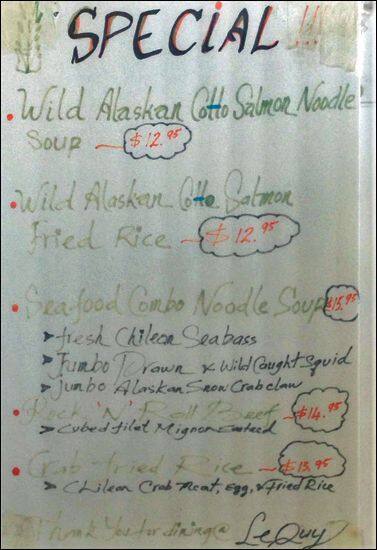 SPECIAL !!!
• Wild Alaskan Cotto Salmon Noodle
Soup — $12.95
• Wild Alaskan Cotto Salmon
Fried Rice — $12.95
• Seafood Combo Noodle Soup $15.95
➤ fresh Chilean Seabass
➤ Jumbo Prawn & Wild Caught Squid
➤ Jumbo Alaskan Snow Crab claw
• Rock 'N' Roll Beef — $14.95
➤ Cubed filet Mignon
• Crab Fried Rice — $13.95
➤ Chilean Crab Meat, Egg, & Fried Rice
Thank You for dining @ Le Quy